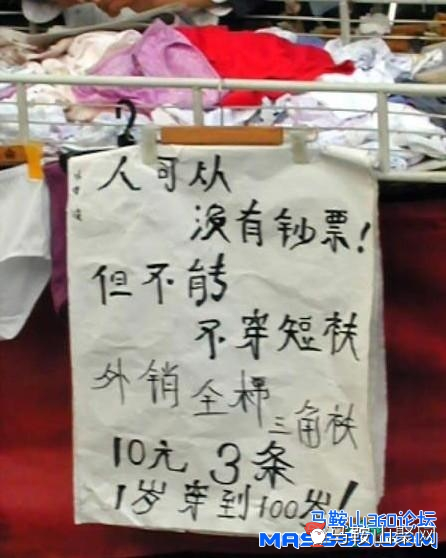 人可从
没有钞票!
但不能
不穿短衭
外销全棉
三角衭
10元 3条
1岁穿到100岁!
马鞍山360论坛
马鞍山聚网